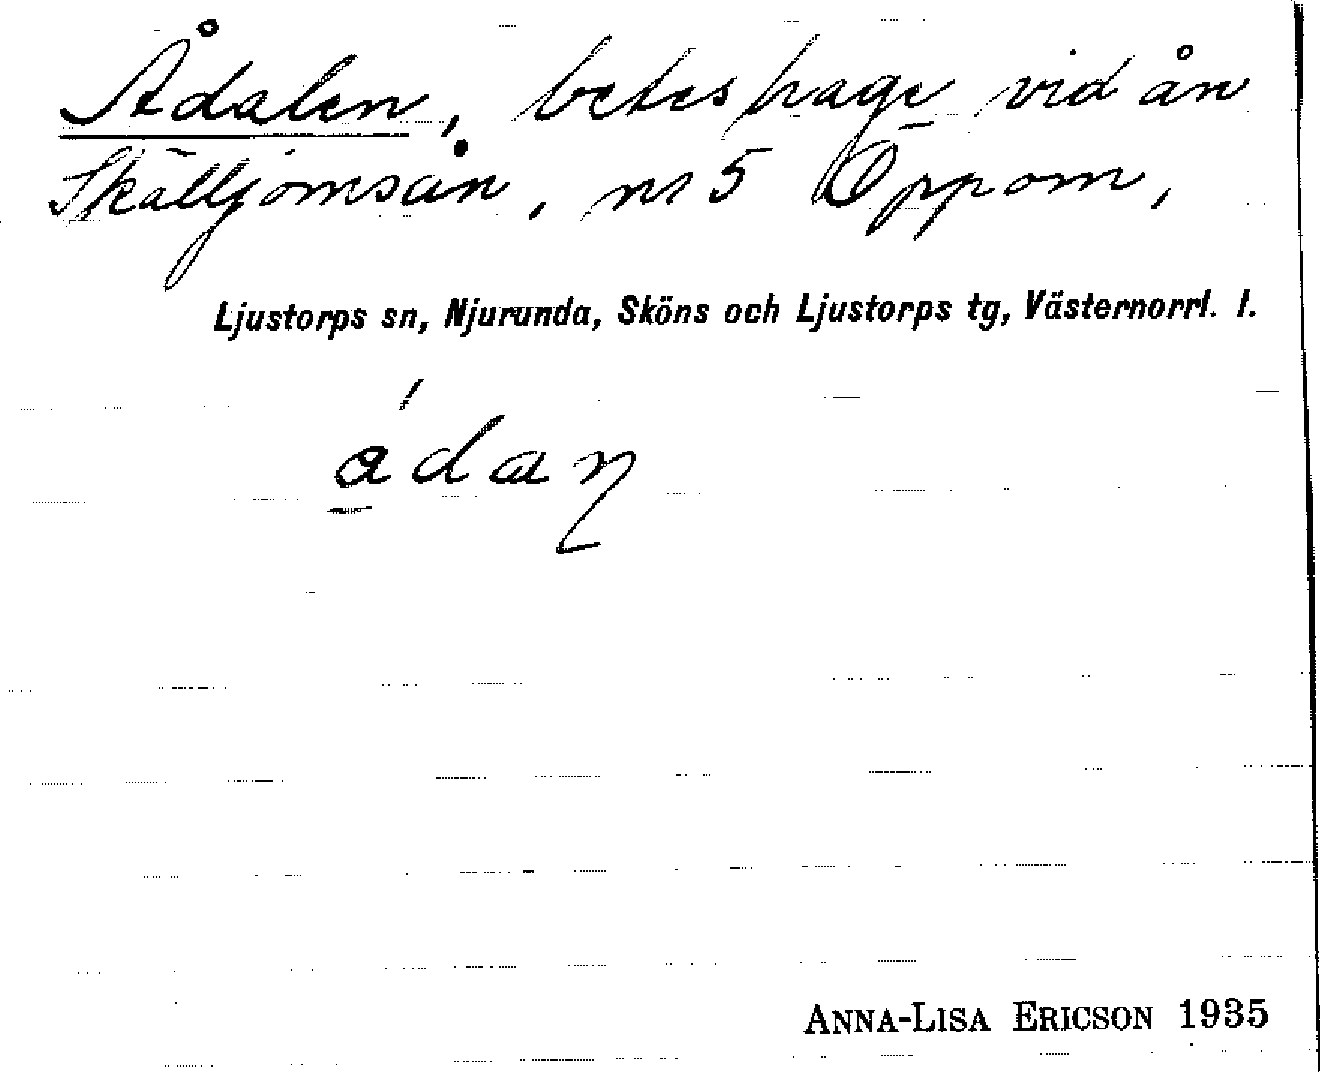 Ådalen, beteshage vid ån
Skälljomsån, nr 5 Öppom,
Ljustorps sn, Njurunda, Sköns och Ljustorps tg, Västernorrl. l.
ANNA-LISA ERICSON 1935